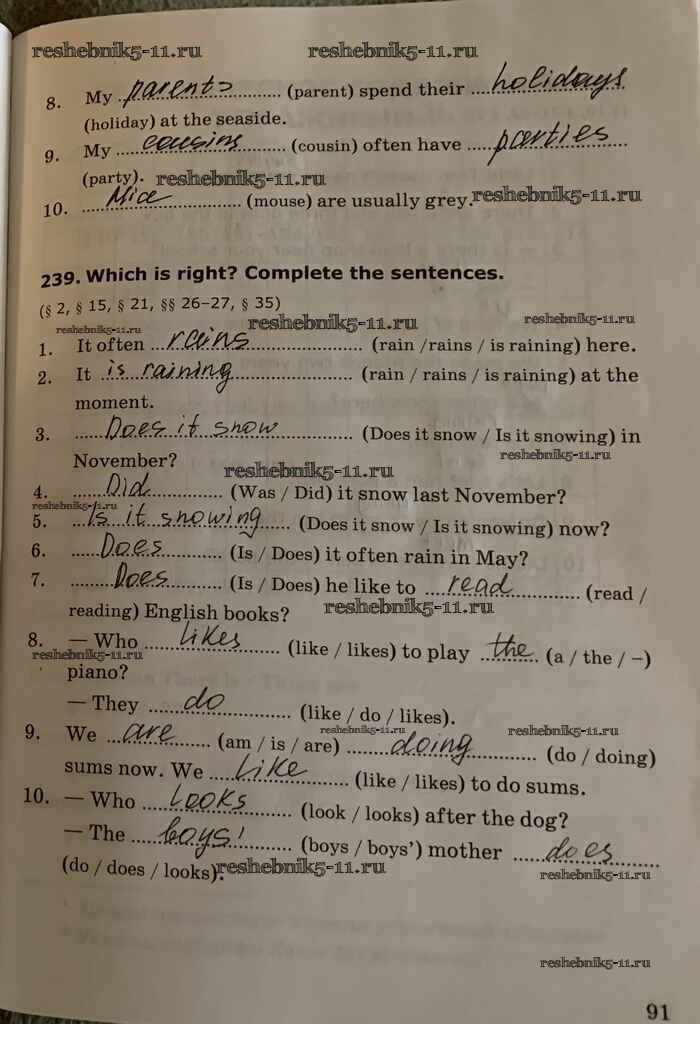 reshebnik5-11.ru reshebnik5-11.ru
8. My parents (parent) spend their holidays
(holiday) at the seaside.
9. My cousins (cousin) often have parties
(party). reshebnik5-11.ru
10. Mice (mouse) are usually grey. reshebnik5-11.ru
239. Which is right? Complete the sentences.
(§ 2, § 15, § 21, §§ 26–27, § 35)
reshebnik5-11.ru reshebnik5-11.ru reshebnik5-11.ru
1. It often rains (rain /rains / is raining) here.
2. It is raining (rain / rains / is raining) at the
moment.
3. Does it snow (Does it snow / Is it snowing) in
November? reshebnik5-11.ru reshebnik5-11.ru
4. Did (Was / Did) it snow last November?
reshebnik5-11.ru
5. Is it snowing (Does it snow / Is it snowing) now?
6. Does (Is / Does) it often rain in May?
7. Does (Is / Does) he like to read (read /
reading) English books? reshebnik5-11.ru
8. — Who likes (like / likes) to play the (a / the / –)
reshebnik5-11.ru
piano?
— They do (like / do / likes).
reshebnik5-11.ru reshebnik5-11.ru
9. We are (am / is / are) doing (do / doing)
sums now. We like (like / likes) to do sums.
10. — Who looks (look / looks) after the dog?
— The boys' (boys / boys’) mother does
(do / does / looks). reshebnik5-11.ru reshebnik5-11.ru
reshebnik5-11.ru
91